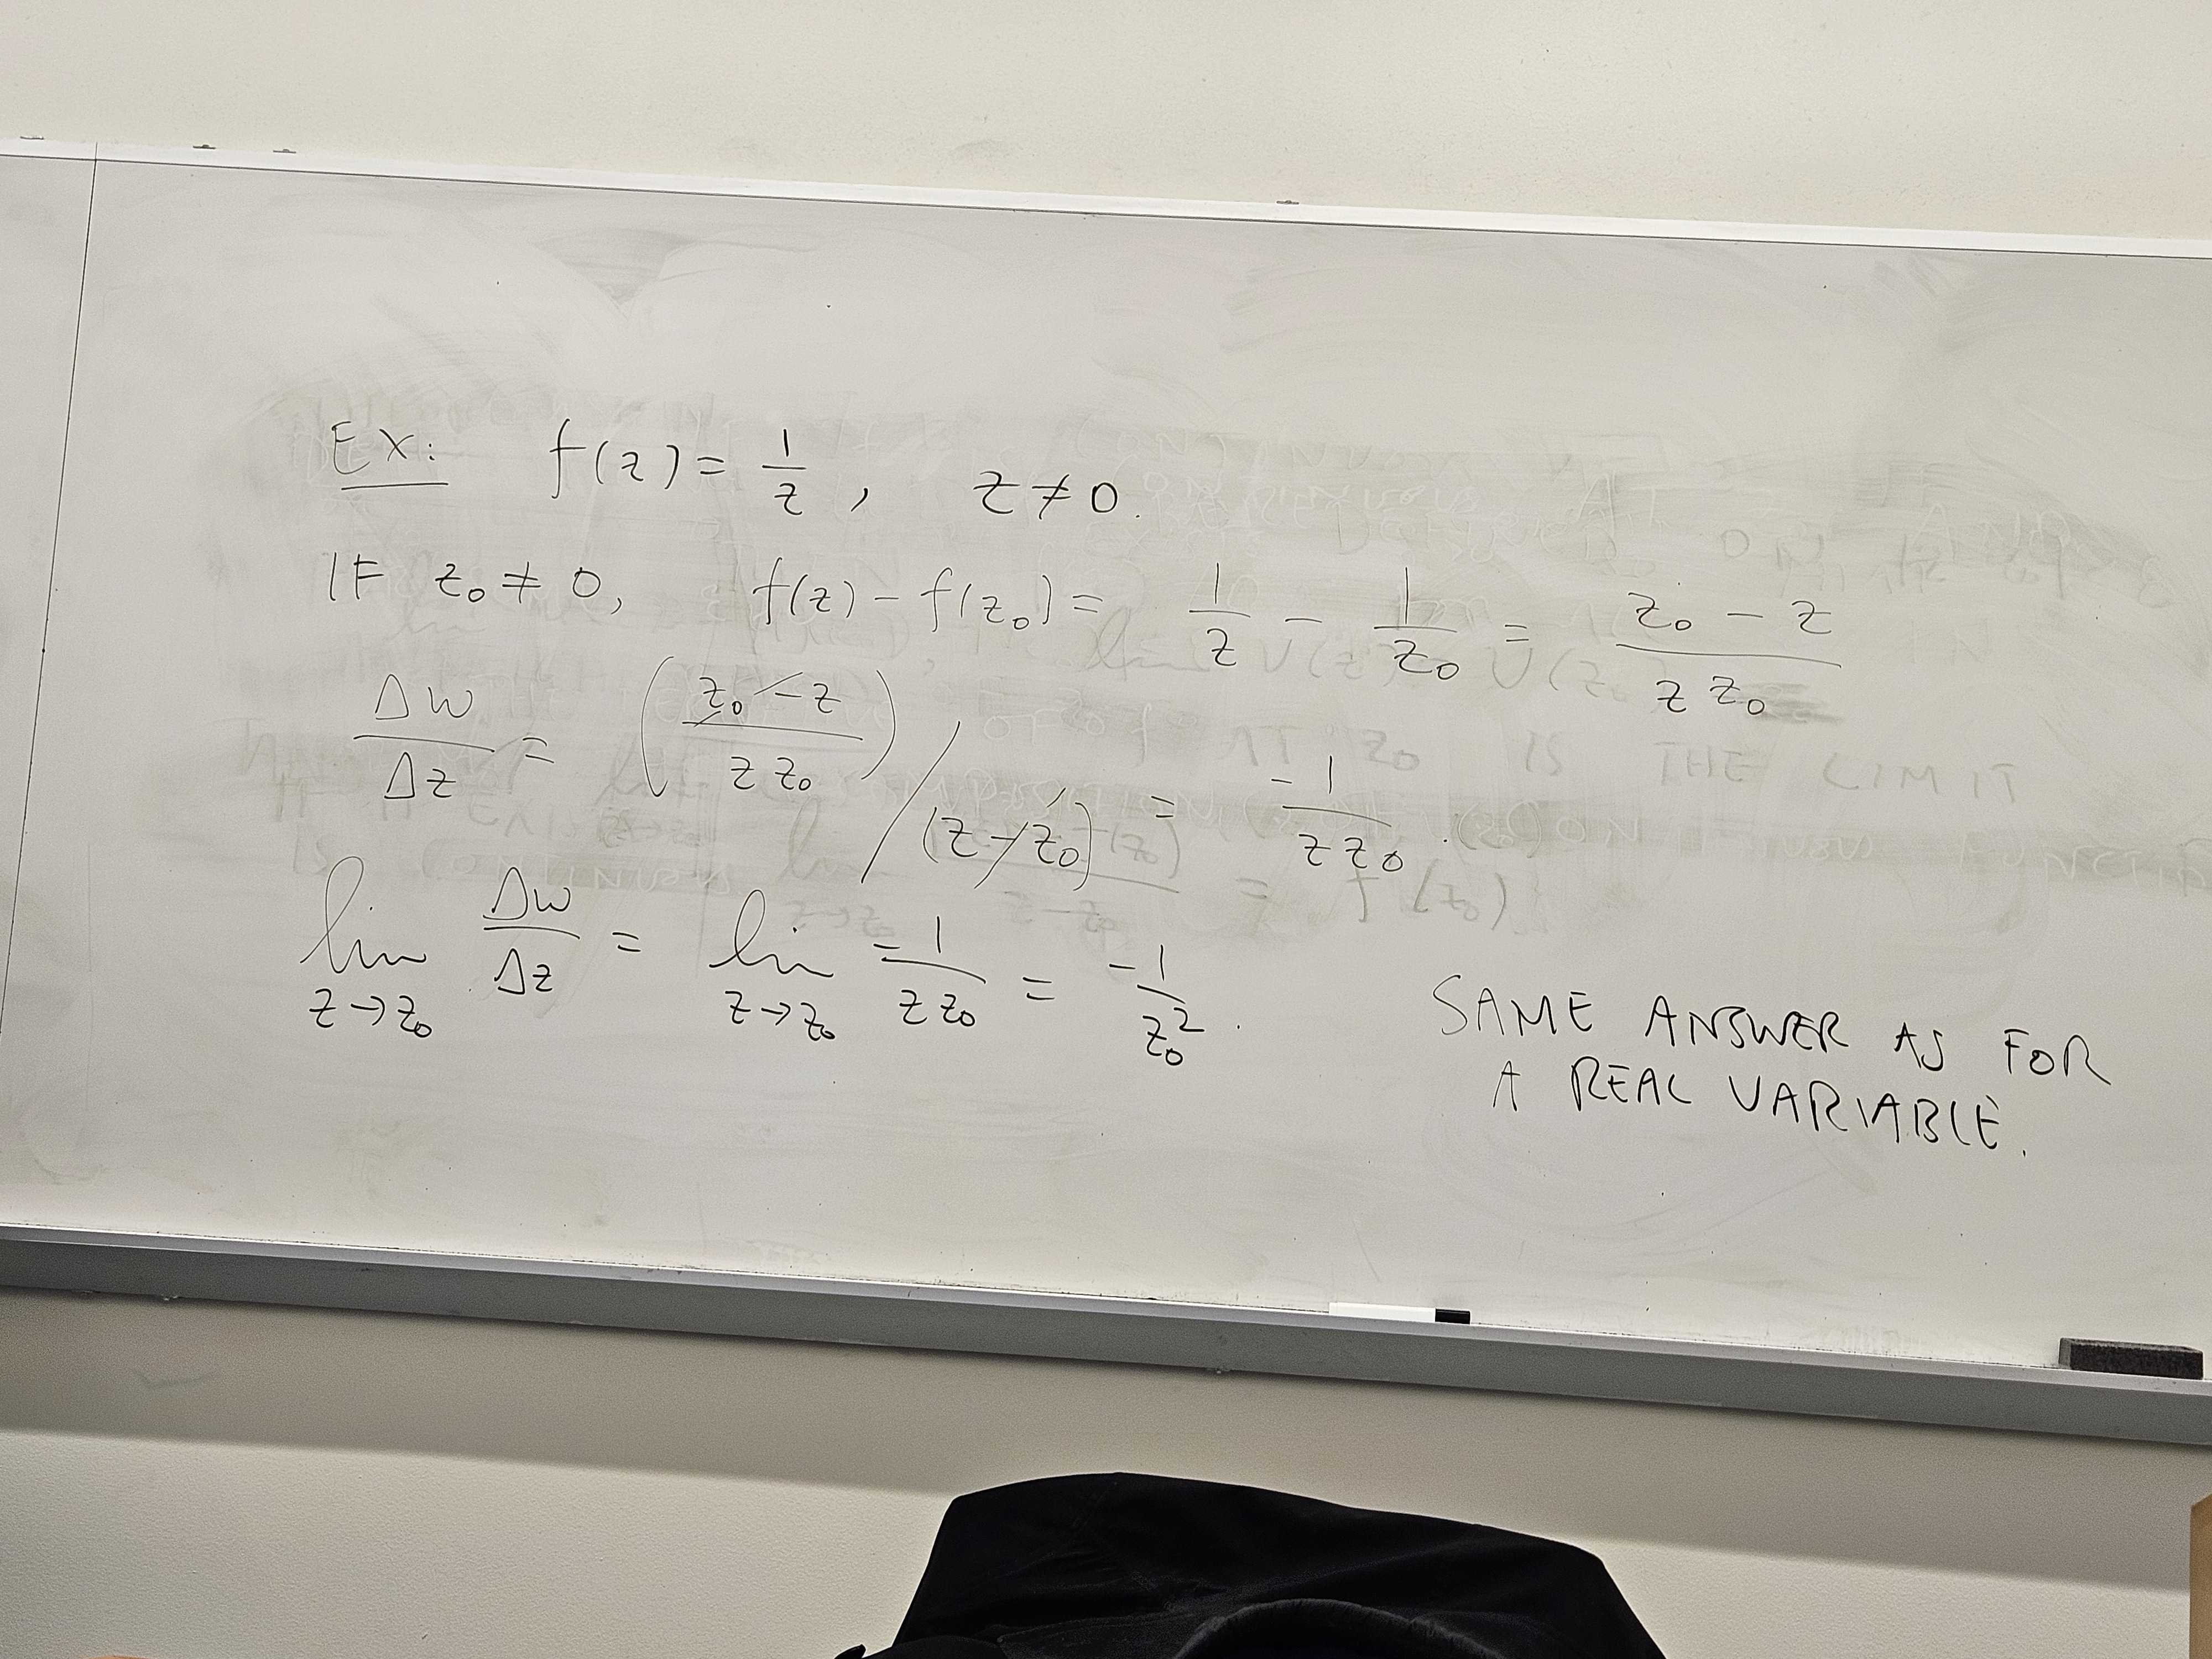 EX: f(z) = 1/z, z ≠ 0.
IF z₀ ≠ 0, f(z) - f(z₀) = 1/z - 1/z₀ = (z₀ - z)/(z z₀)
Δw/Δz = ((z₀ - z)/(z z₀)) / (z - z₀) = -1/(z z₀).
lim z→z₀ Δw/Δz = lim z→z₀ -1/(z z₀) = -1/z₀².
SAME ANSWER AS FOR
A REAL VARIABLE.